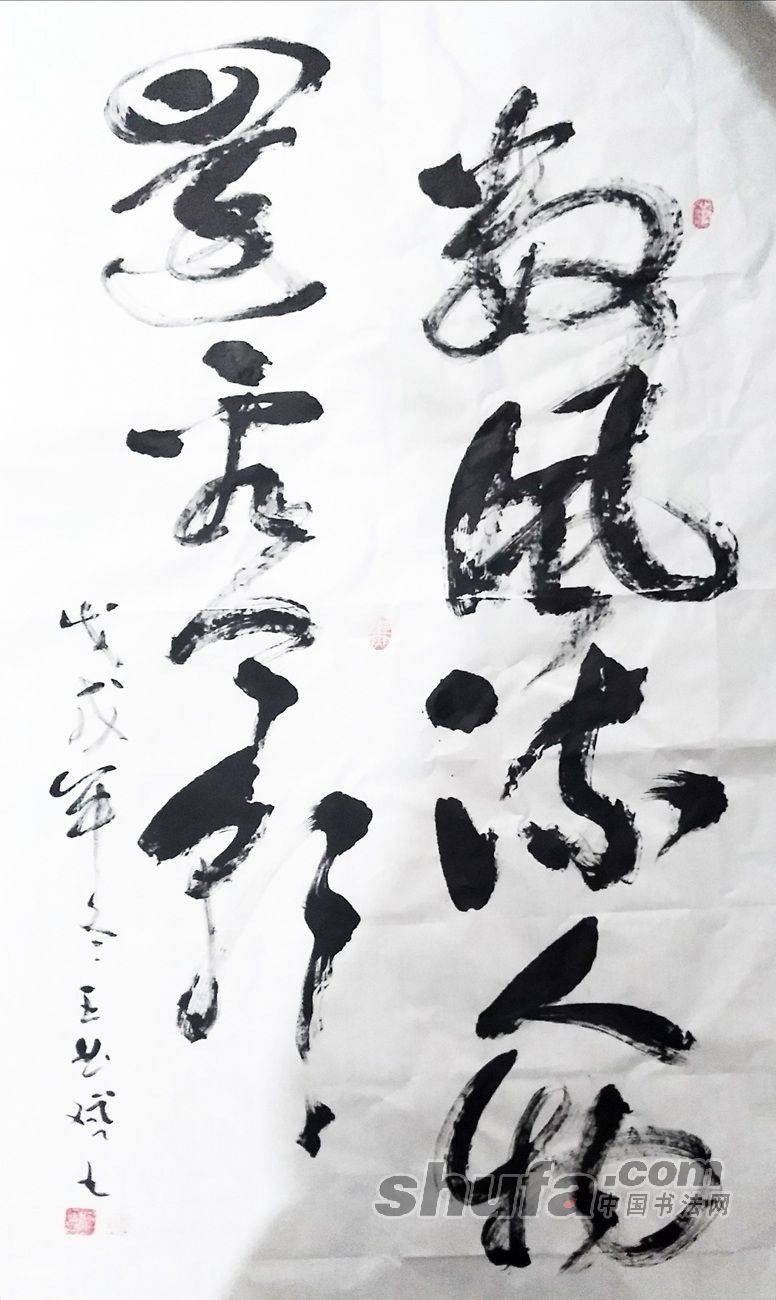 数风流人物
还看今朝
戊戌年冬王
shufa.com
中国书法网